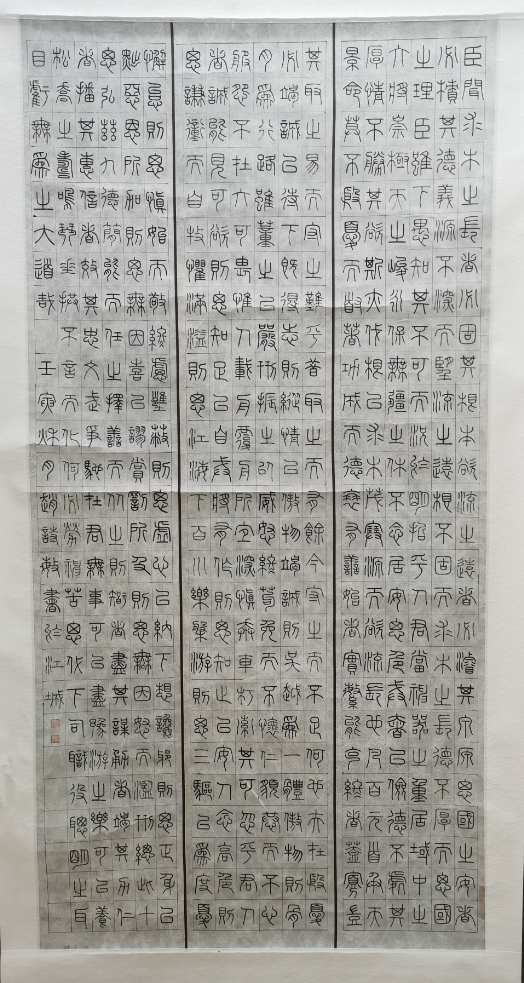 臣聞求木之長者必固其根本欲流之遠者必濬其泉源思國之安者
必積其德義源不深而望流之遠根不固而求木之長德不厚而思國
之理臣雖下愚知其不可而況於明哲乎人君當神器之重居域中之
大將崇極天之峻永保無疆之休不念居安思危戒奢以儉德不處其
厚情不勝其欲斯亦伐根以求木茂塞源而欲流長也凡百元首承天
景命莫不殷憂而道著功成而德衰有善始者實繁能克終者蓋寡豈
其取之易而守之難乎昔取之而有餘今守之而不足何也夫在殷憂
必竭誠以待下既得志則縱情以傲物竭誠則吳越為一體傲物則骨
肉為行路雖董之以嚴刑振之以威怒終苟免而不懷仁貌恭而不心
服怨不在大可畏惟人載舟覆舟所宜深慎奔車朽索其可忽乎君人
者誠能見可欲則思知足以自戒將有作則思知止以安人念高危則
思謙沖而自牧懼滿溢則思江海下百川樂盤遊則思三驅以為度憂
懈怠則思慎始而敬終慮壅蔽則思虛心以納下想讒邪則思正身以
黜惡恩所加則思無因喜以謬賞罰所及則思無因怒而濫刑總此十
思弘茲九德簡能而任之擇善而從之則智者盡其謀勇者竭其力仁
者播其惠信者效其忠文武爭馳在君無事可以盡豫遊之樂可以養
松喬之壽鳴琴垂拱不言而化何必勞神苦思代下司職役聰明之耳
目虧無為之大道哉 壬寅秋月趙詩書於江城